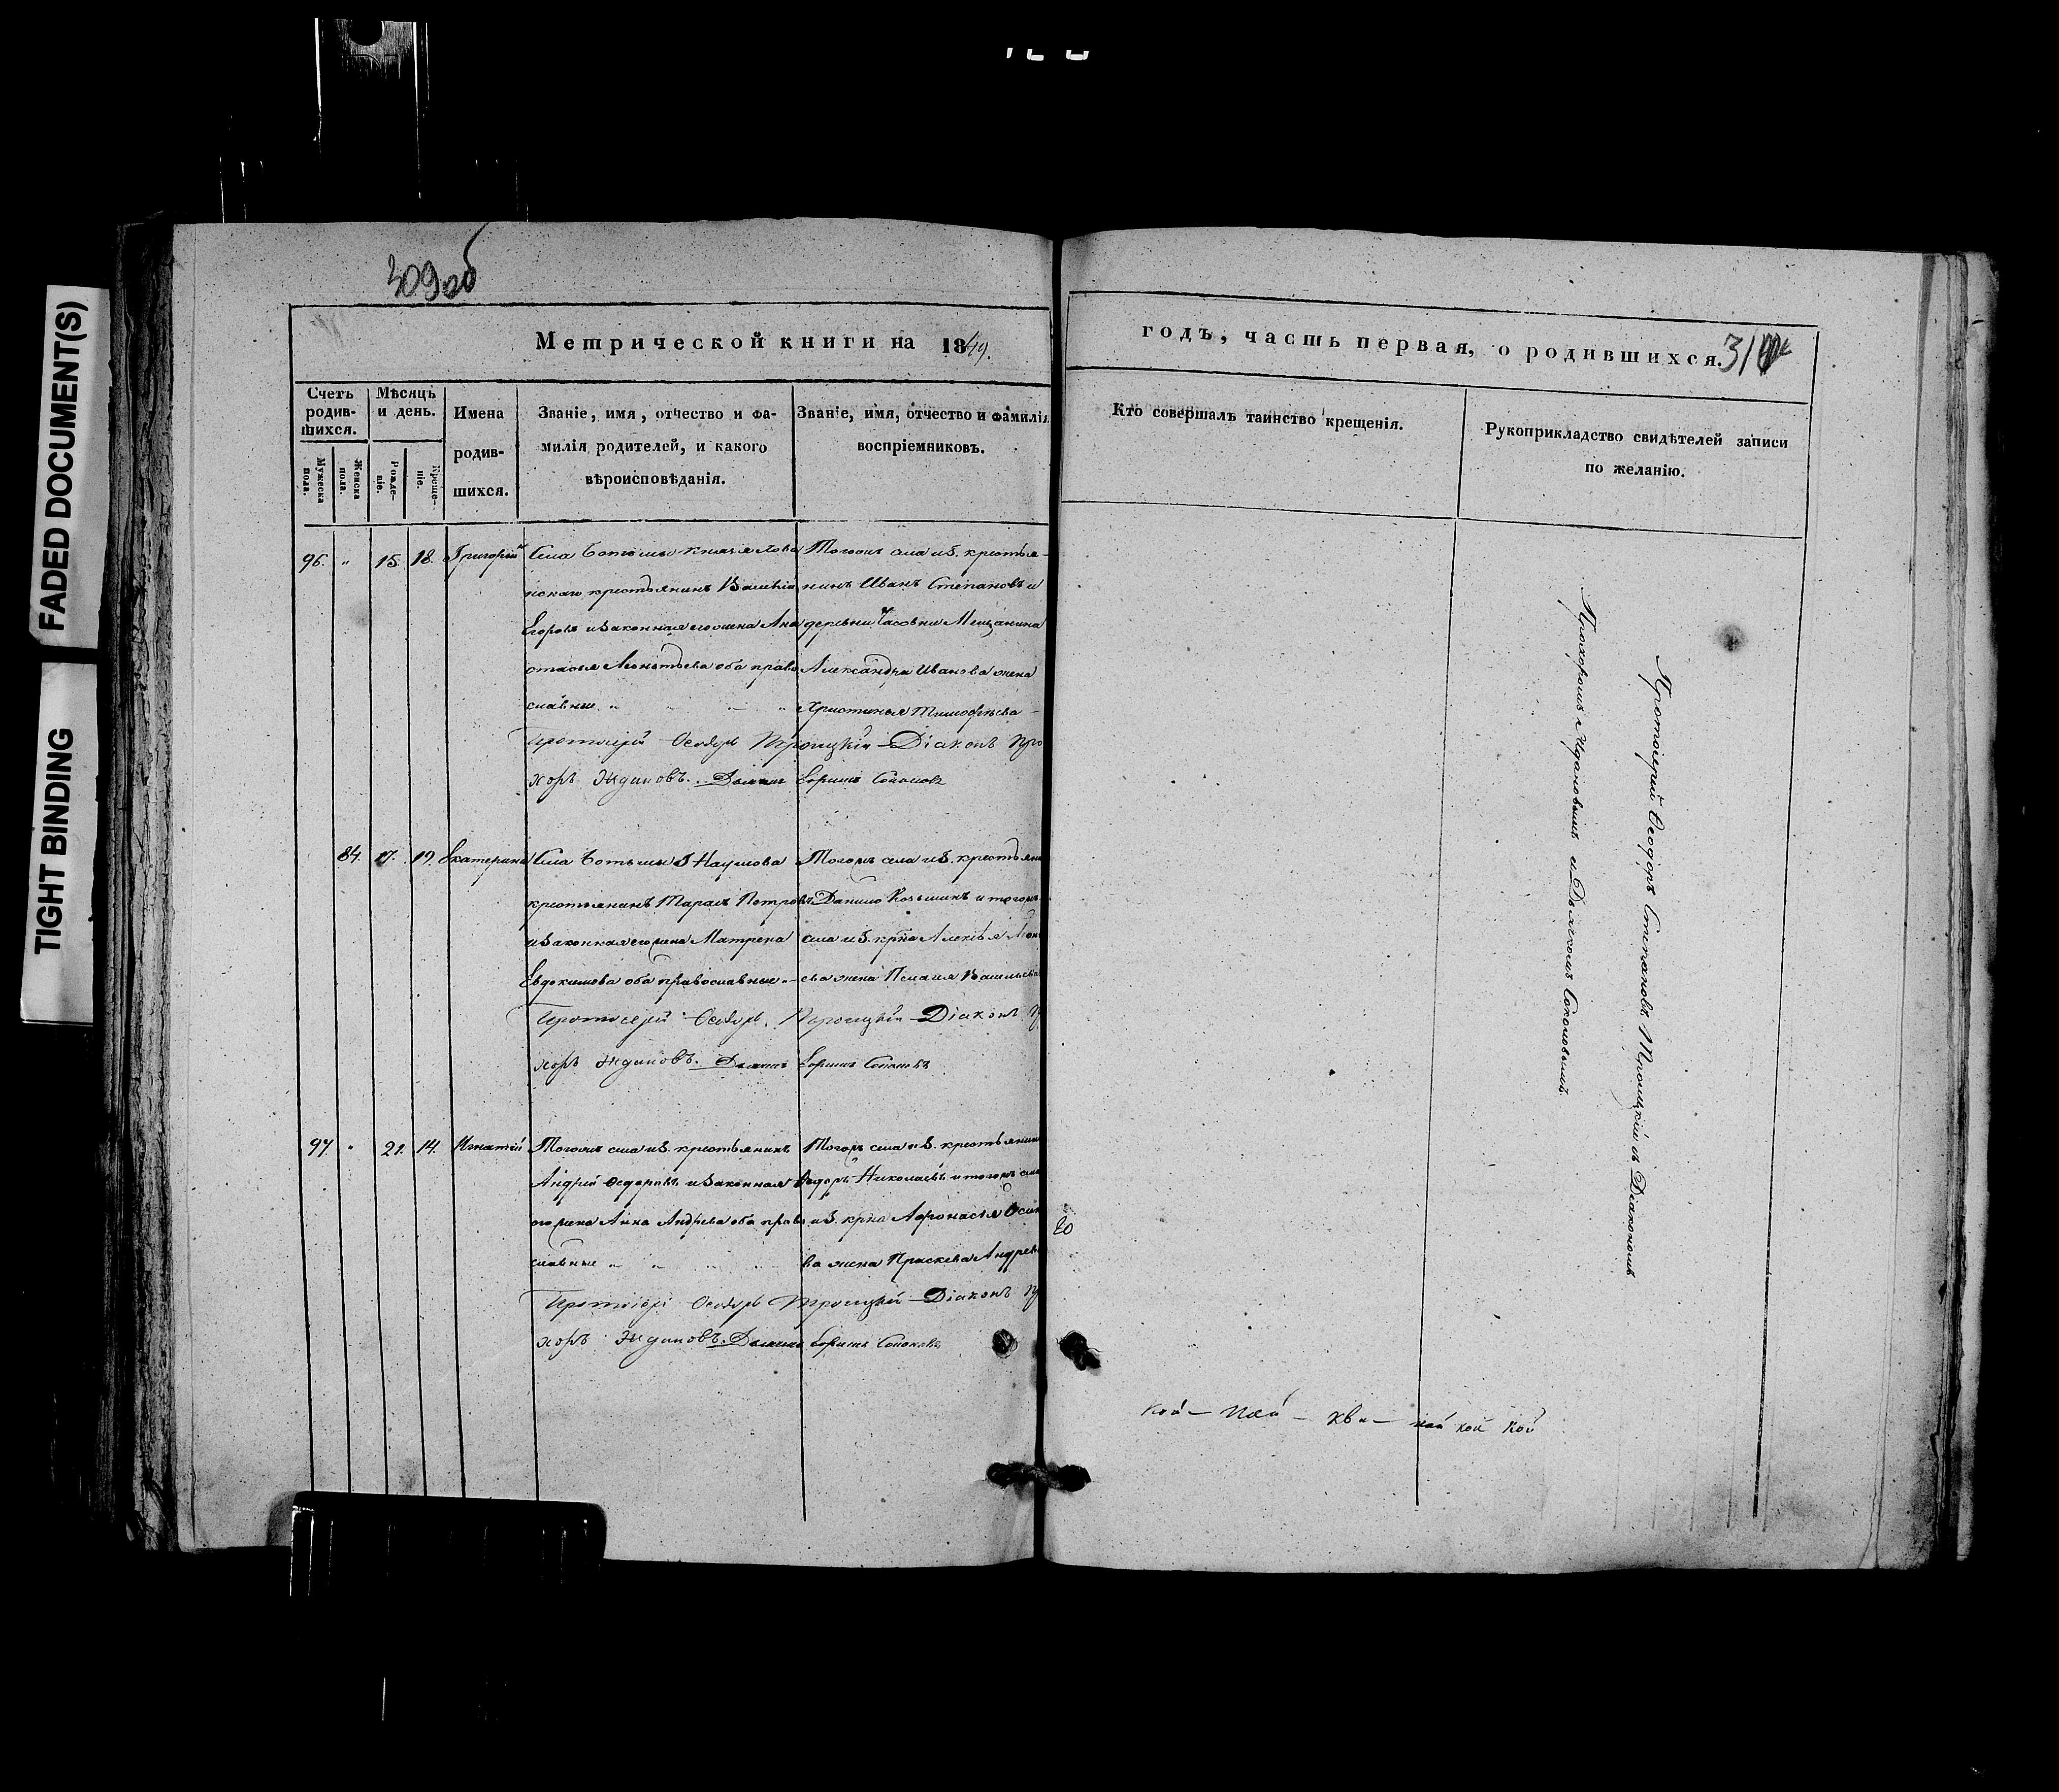 FADED DOCUMENT(S)
TIGHT BINDING
309об
Метрической книги на 1849.
годъ, часть первая, о родившихся.
310
Счетъ родив-шихся.
Мужеска пола.
Женска пола.
Мѣсяцъ и день.
Рожде-ніе.
Креще-ніе.
Имена родив-шихся.
Званіе, имя, отчество и фа-
милія родителей, и какого
вѣроисповѣданія.
Званіе, имя, отчество и фамилія
воспріемниковъ.
Кто совершалъ таинство крещенія.
Рукоприкладство свидѣтелей записи
по желанію.
96. " 15. 18. Григорій
Села Ботьмы
крестьянинъ Василій
Егоровъ и законная его жена Ана
стасья Леонтьева оба право
славные
Тогожъ села из. крестья-
нинъ Иванъ Степановъ и
деревни Часовни Мещанина
Александра Иванова жена
Христинья Тимофѣева
Протоіерей Ѳеодоръ Троицкій Діаконъ Про
хоръ Ждановъ. Дьячекъ Борисъ Соколовъ
84. 17. 19. Екатерина
Села Ботьмы Наумова
крестьянинъ Тарасъ Петровъ
и законная его жена Матрена
Евдокимова оба православные
Тогожъ села из. крестьяни
Данило Козьминъ и тогожъ
села из. крна Алексѣя
ева жена Васильева
Протоіерей Ѳеодоръ Троицкій Діаконъ
хоръ Ждановъ. Дьячекъ Борисъ Соколовъ
97 " 21. 14. Игнатій
Тогожъ села из. крестьянинъ
Андрей Ѳедоровъ и законная
его жена Анна Андрева оба право
славные
Тогожъ села из. крестьянинъ
Ѳедоръ Николаевъ и тогожъ села
из. крна Афонасія Осипо
ва жена Праскева Андрев
Протоіерей Ѳеодоръ Троицкій Діаконъ
хоръ Ждановъ. Дьячекъ Борисъ Соколовъ
Протоіерей Ѳеодоръ Степановъ Троицкій съ Діакономъ
Прохоромъ Ждановымъ и Дьячкомъ Соколовымъ.
кой кой